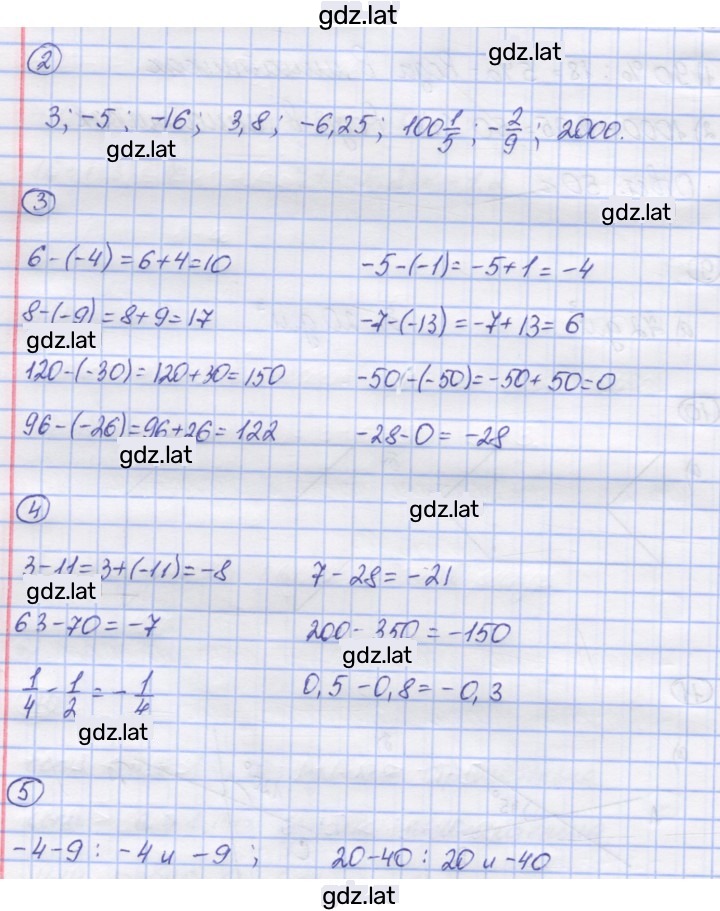 gdz.lat
gdz.lat
2
3; -5; -16; 3,8; -6,25; 100 1/5; -2/9; 2000.
gdz.lat
3
gdz.lat
6-(-4)=6+4=10 -5-(-1)=-5+1=-4
8-(-9)=8+9=17 -7-(-13)=-7+13=6
gdz.lat
120-(-30)=120+30=150 -50-(-50)=-50+50=0
96-(-26)=96+26=122 -28-0=-28
gdz.lat
4
gdz.lat
3-11=3+(-11)=-8 7-28=-21
gdz.lat
63-70=-7 200-350=-150
gdz.lat
1/4-1/2=-1/4 0,5-0,8=-0,3
gdz.lat
5
-4-9: -4 и -9; 20-40: 20 и -40
gdz.lat